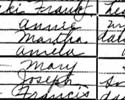 ki Frank
Annie
Martha
Amelia
Mary
Joseph
Francis